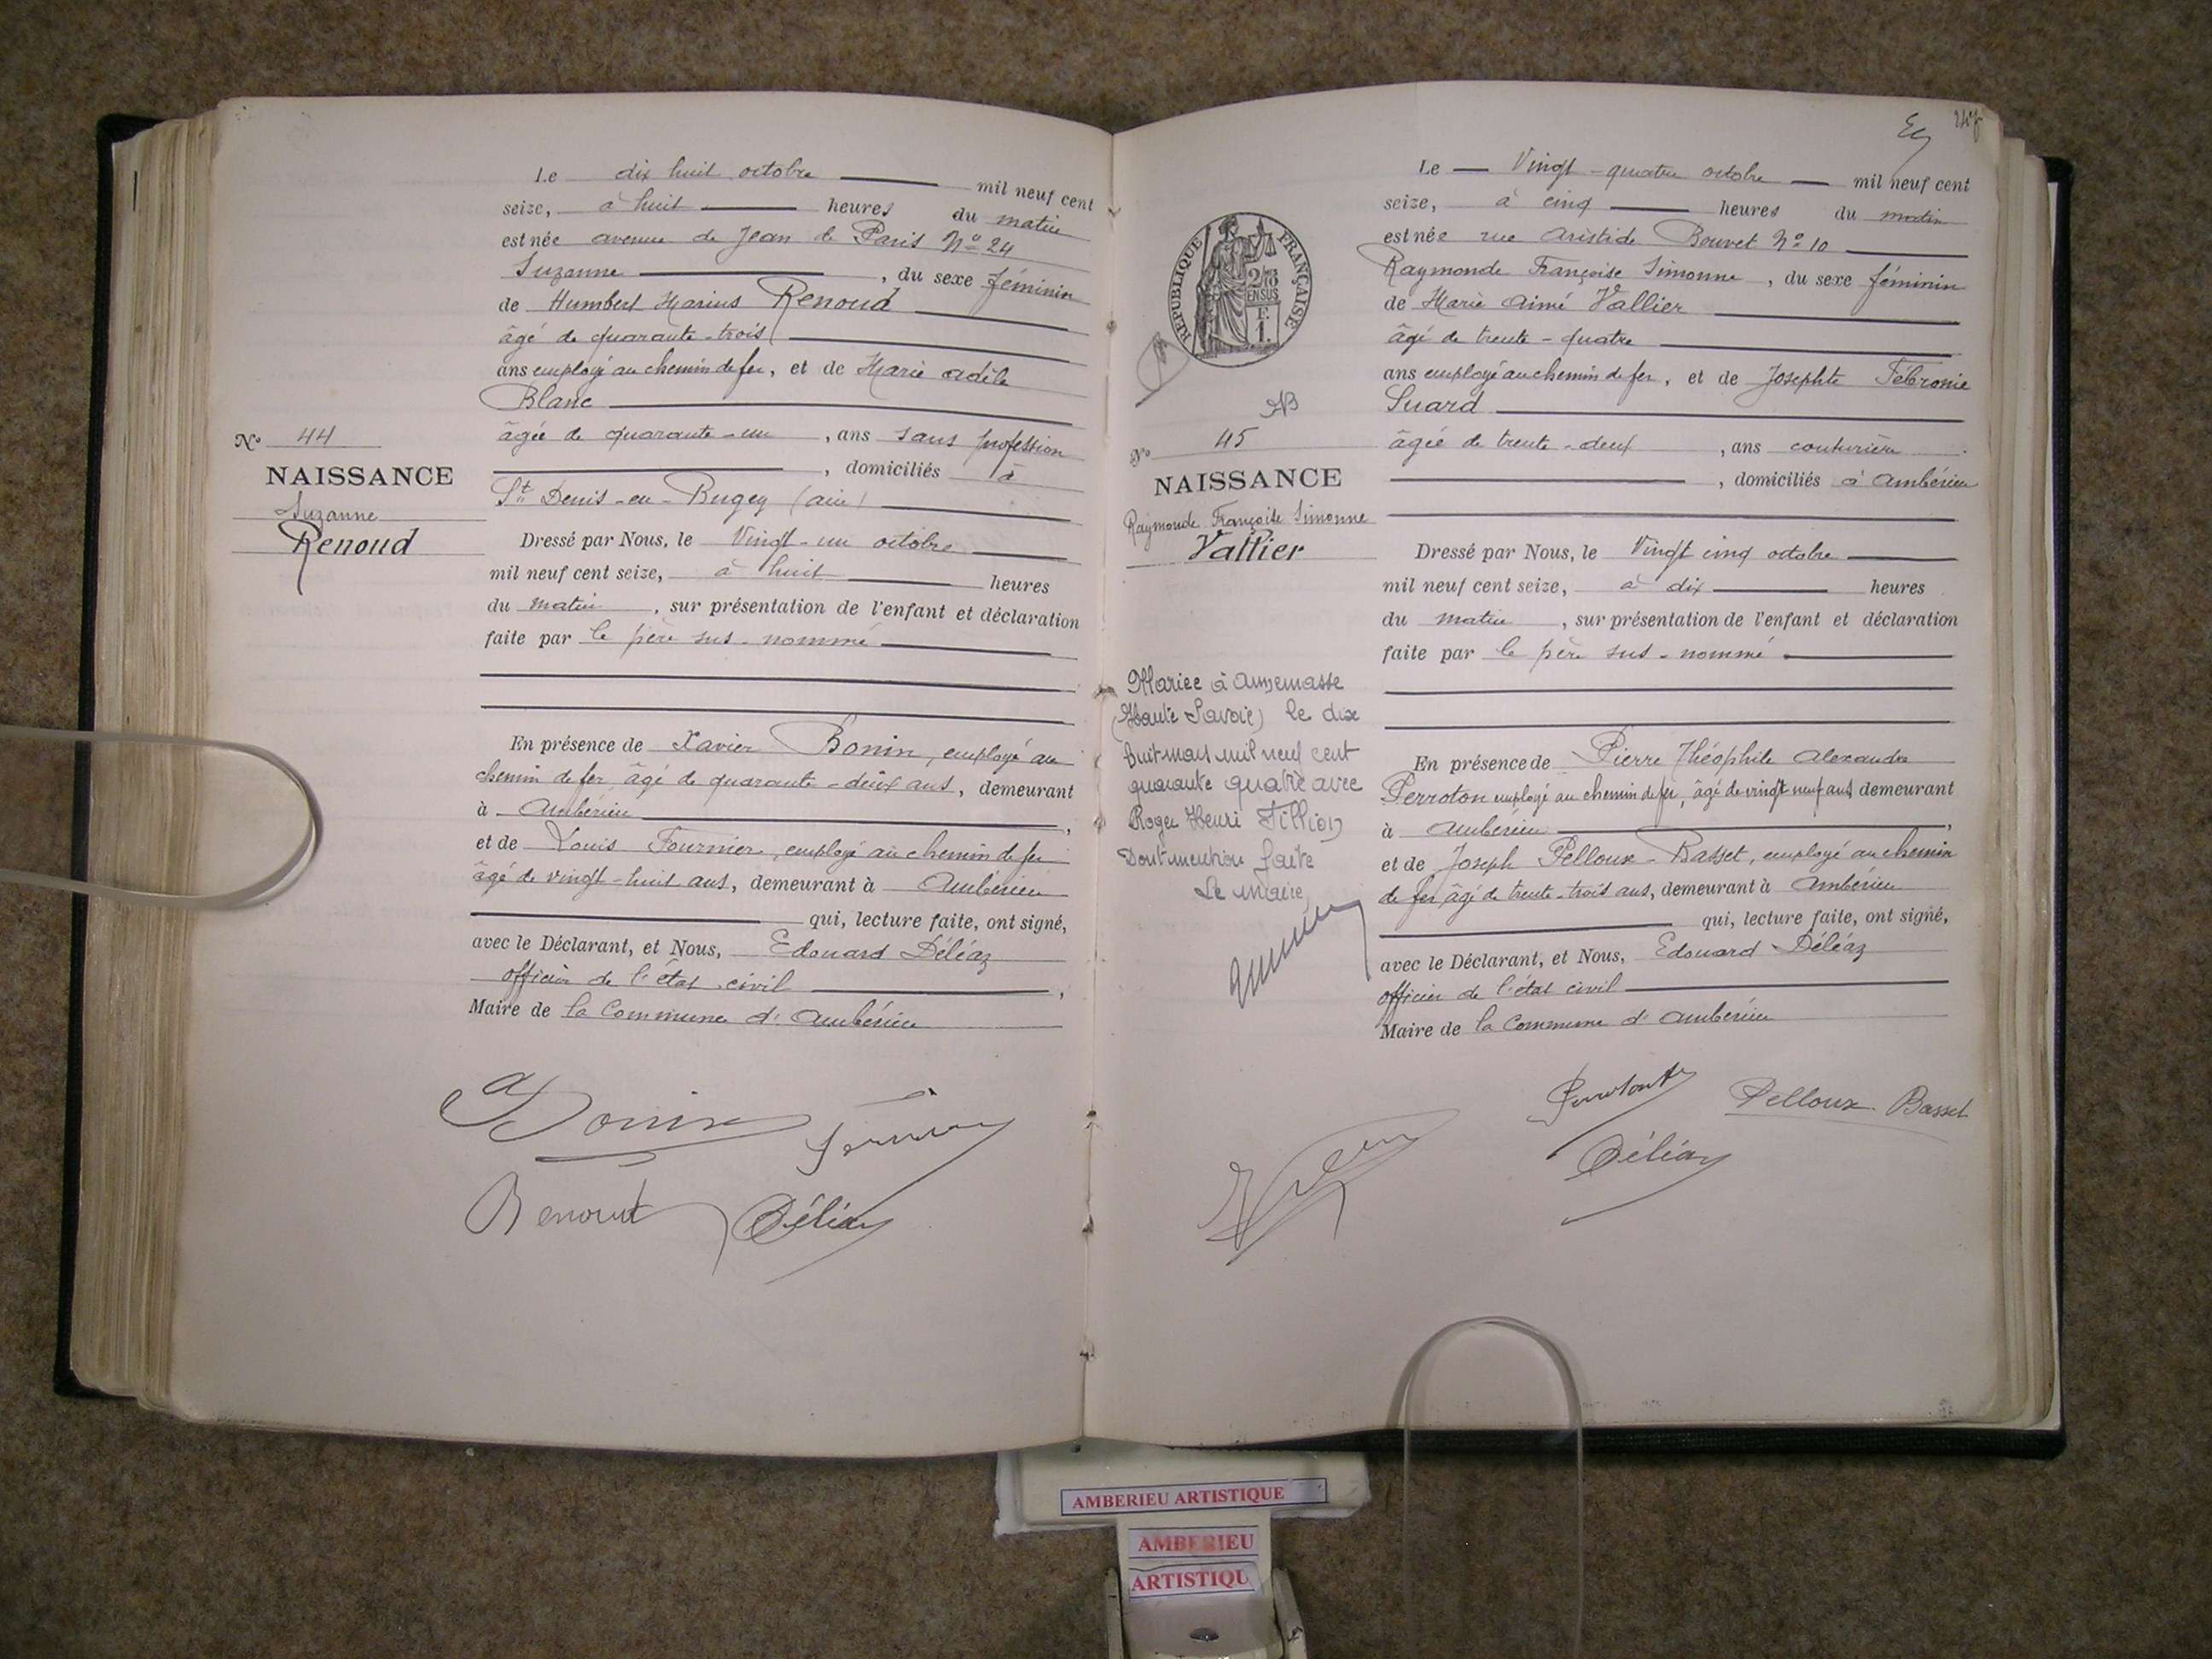 Le dix huit octobre mil neuf cent
seize, à huit heures du matin
est née avenue de Jean de Paris N° 24
Suzanne, du sexe féminin
de Humbert Marius Renoud
âgé de quarante-trois
ans employé au chemin de fer, et de Marie Adèle
Blanc
âgée de quarante-un, ans sans profession
, domiciliés à
St Denis-en-Bugey (ain)
N° 44
NAISSANCE
Suzanne
Renoud
Dressé par Nous, le Vingt-un octobre
mil neuf cent seize, à huit heures
du matin, sur présentation de l'enfant et déclaration
faite par le père sus-nommé
En présence de Xavier Bonin, employé au
chemin de fer, âgé de quarante-deux ans, demeurant
à Ambérieu,
et de Louis Fournier, employé au chemin de fer
âgé de vingt-huit ans, demeurant à Ambérieu
qui, lecture faite, ont signé,
avec le Déclarant, et Nous, Edouard Déléaz
officier de l'état civil,
Maire de la Commune d'Ambérieu
Bonin
Renoud Déléaz
Le Vingt-quatre octobre mil neuf cent
seize, à cinq heures du matin
est née rue Aristide Bouvet N° 10
Raymonde Françoise Simonne, du sexe féminin
de Marie Aimé Vallier
âgé de trente-quatre
ans employé au chemin de fer, et de Josephte Fébronie
Suard
âgée de trente-deux, ans couturière
, domiciliés à Ambérieu
REPUBLIQUE FRANÇAISE
2/10
EN SUS
F.
1.
N° 45
NAISSANCE
Raymonde Françoise Simonne
Vallier
Dressé par Nous, le Vingt cinq octobre
mil neuf cent seize, à dix heures
du matin, sur présentation de l'enfant et déclaration
faite par le père sus-nommé
Mariée à Annemasse
(Haute Savoie) le dix
huit mars mil neuf cent
quarante quatre avec
Roger Henri Fillion
Dont mention faite
Le maire,
En présence de Pierre Théophile Alexandre
Perroton employé au chemin de fer, âgé de vingt neuf ans demeurant
à Ambérieu,
et de Joseph Pelloux-Basset, employé au chemin
de fer, âgé de trente-trois ans, demeurant à Ambérieu
qui, lecture faite, ont signé,
avec le Déclarant, et Nous, Edouard Déléaz
officier de l'état civil
Maire de la Commune d'Ambérieu
Perroton Pelloux-Basset
Déléaz
AMBERIEU ARTISTIQUE
AMBERIEU
ARTISTIQU